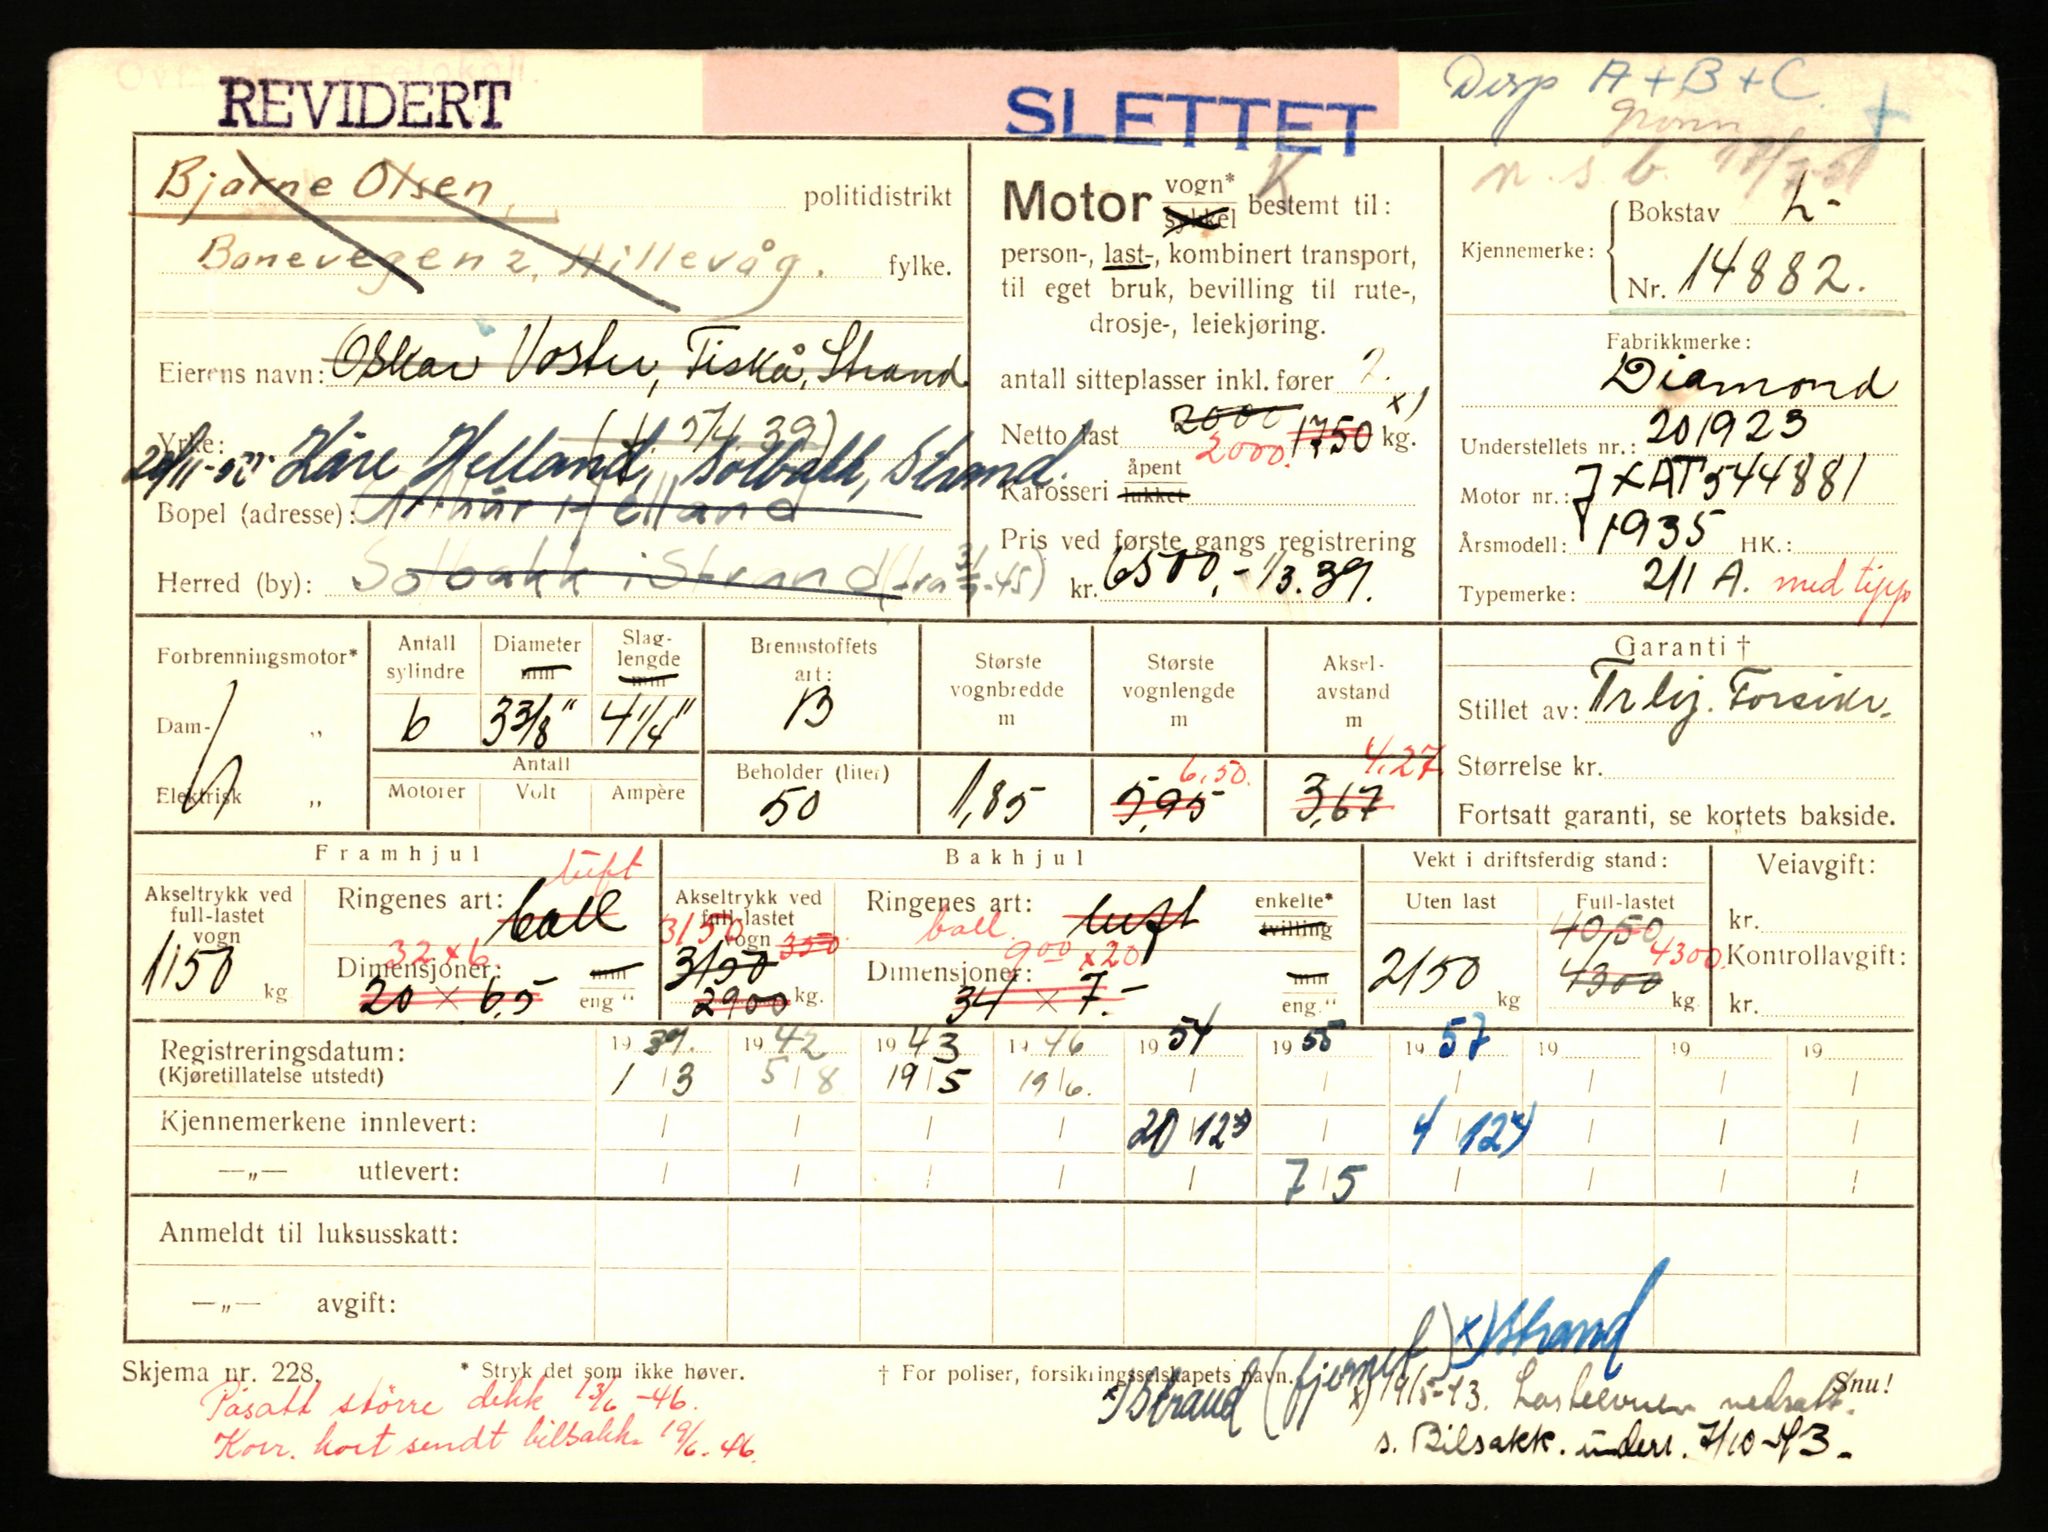 REVIDERT
SLETTET
Disp A + B + C.
n. s. b.
Bjarne Olsen, politidistrikt
Banevegen 2, Hillevåg. fylke.
Eierens navn: Oskar Voster, Fiskå, Strand
Yrke:
Kåre Helland, Solbakk, Strand.
Bopel (adresse): Arthur Helland
Herred (by): Solbakk i Strand
Motor vogn* sykkel bestemt til:
person-, last-, kombinert transport,
til eget bruk, bevilling til rute-,
drosje-, leiekjøring.
antall sitteplasser inkl. fører 2.
Netto last 2000 1750 kg.
2000. x)
Karosseri åpent lukket
Pris ved første gangs registrering
kr. 6500,- 1/3.39.
Kjennemerke: Bokstav L-
Nr. 14882.
Fabrikkmerke:
Diamond
Understellets nr.: 201923
Motor nr.: 7XAT544881
Årsmodell: 1935 HK.:
Typemerke: 211 A. med tipp
Forbrenningsmotor*
Dam- „
Elektrisk „
Antall sylindre 6
Diameter mm 3 3/8"
Slag-lengde mm 4 1/4"
Antall
Motorer Volt Ampère
Brennstoffets art: B
Beholder (liter) 50
Største vognbredde m 1,85
Største vognlengde m 6,50. 5,95
Aksel-avstand m 4,27 3,67
Garanti †
Stillet av: Forsikr.
Størrelse kr.
Fortsatt garanti, se kortets bakside.
Framhjul
Akseltrykk ved full-lastet vogn 1150 kg
Ringenes art: luft ball
Dimensjoner: 32 x 6
20 x 6,5 mm eng "
Bakhjul
Akseltrykk ved full-lastet vogn 3150 350
3150
2900 kg.
Ringenes art: ball luft enkelte* tvilling
Dimensjoner: 9.00 x 20
34 x 7.- mm eng. "
Vekt i driftsferdig stand:
Uten last 2150 kg
Full-lastet 4050 4300
4300 kg.
Veiavgift:
kr.
Kontrollavgift:
kr.
Registreringsdatum: 1939. 1942 1943 1946 1954 1955 1957 19 19 19
(Kjøretillatelse utstedt) 1/3 5/8 19/5 19/6.
Kjennemerkene innlevert: 20/12 x) 4/12 x)
—„— utlevert: 7/5
Anmeldt til luksusskatt:
—„— avgift:
x) Strand
Skjema nr. 228. * Stryk det som ikke høver. † For poliser, forsikringsselskapets navn. Snu!
x) Strand (fjernet)
Påsatt større dekk 13/6 -46.
Korr. kort sendt bilsakk. 19/6. 46.
x) 19/5-43. Lasteevnen nedsatt.
s. Bilsakk. underr. 7/10-43.-